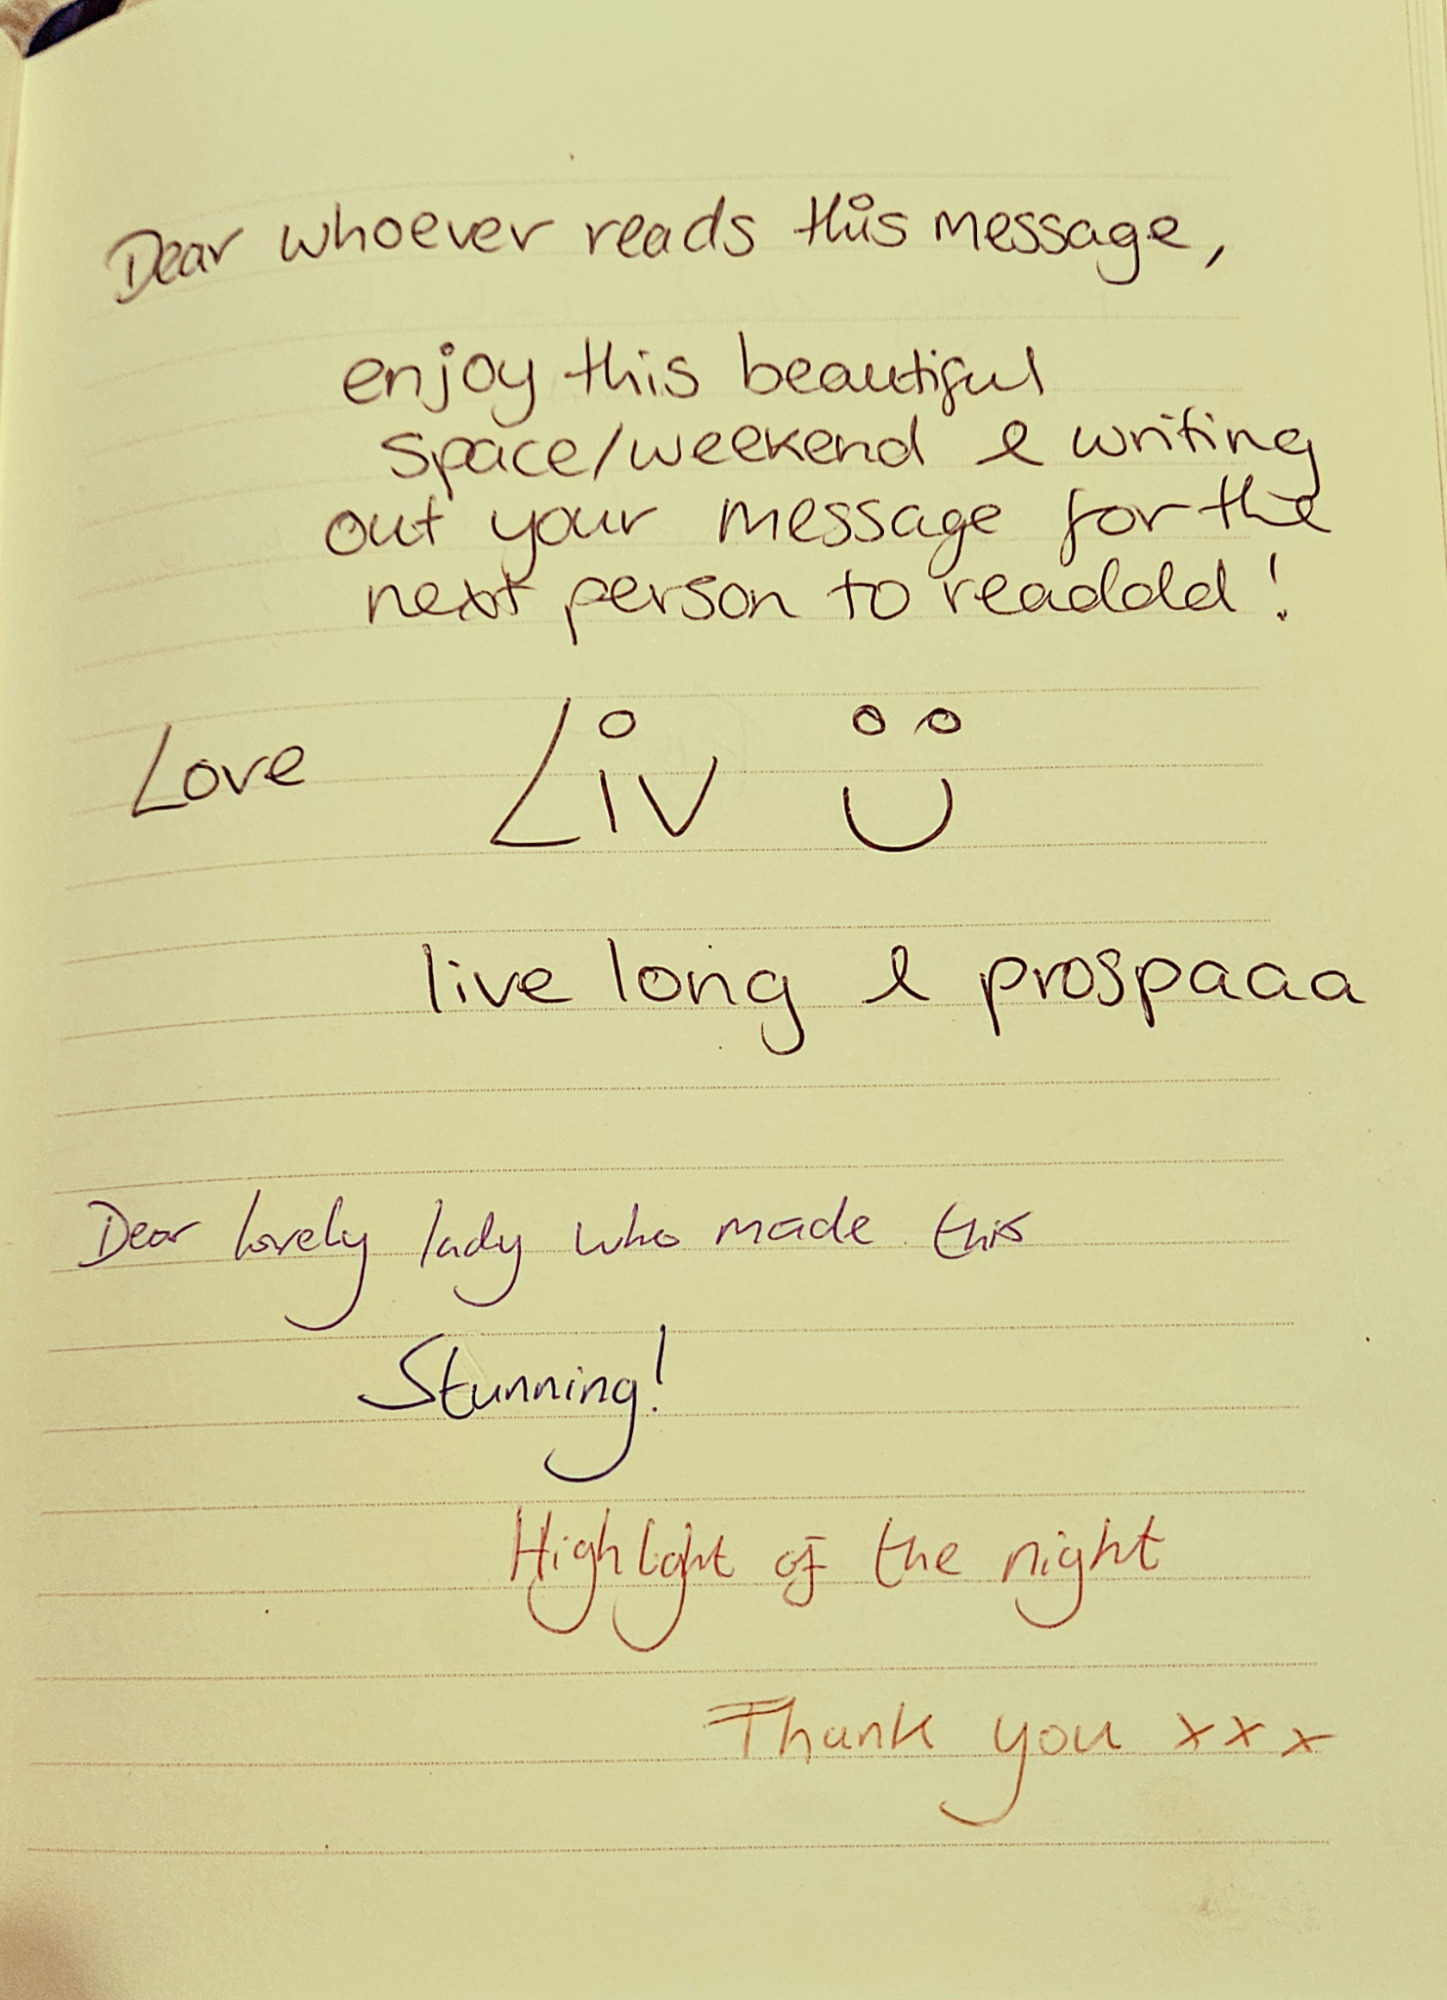 Dear whoever reads this message,
enjoy this beautiful
space/weekend & writing
out your message for the
next person to readddd!
Love Liv
live long & prospaaa
Dear lovely lady who made this
Stunning!
Highlight of the night
Thank you xxx